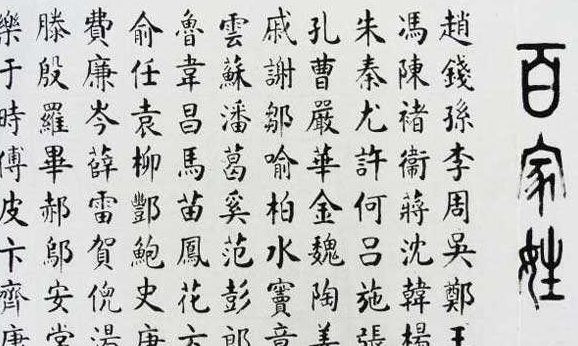 百家姓
趙錢孫李周吳鄭王
馮陳褚衞蔣沈韓楊
朱秦尤許何呂施張
孔曹嚴華金魏陶姜
戚謝鄒喻柏水竇章
雲蘇潘葛奚范彭郎
魯韋昌馬苗鳳花方
俞任袁柳酆鮑史唐
費廉岑薛雷賀倪湯
滕殷羅畢郝鄔安常
樂于時傅皮卞齊康